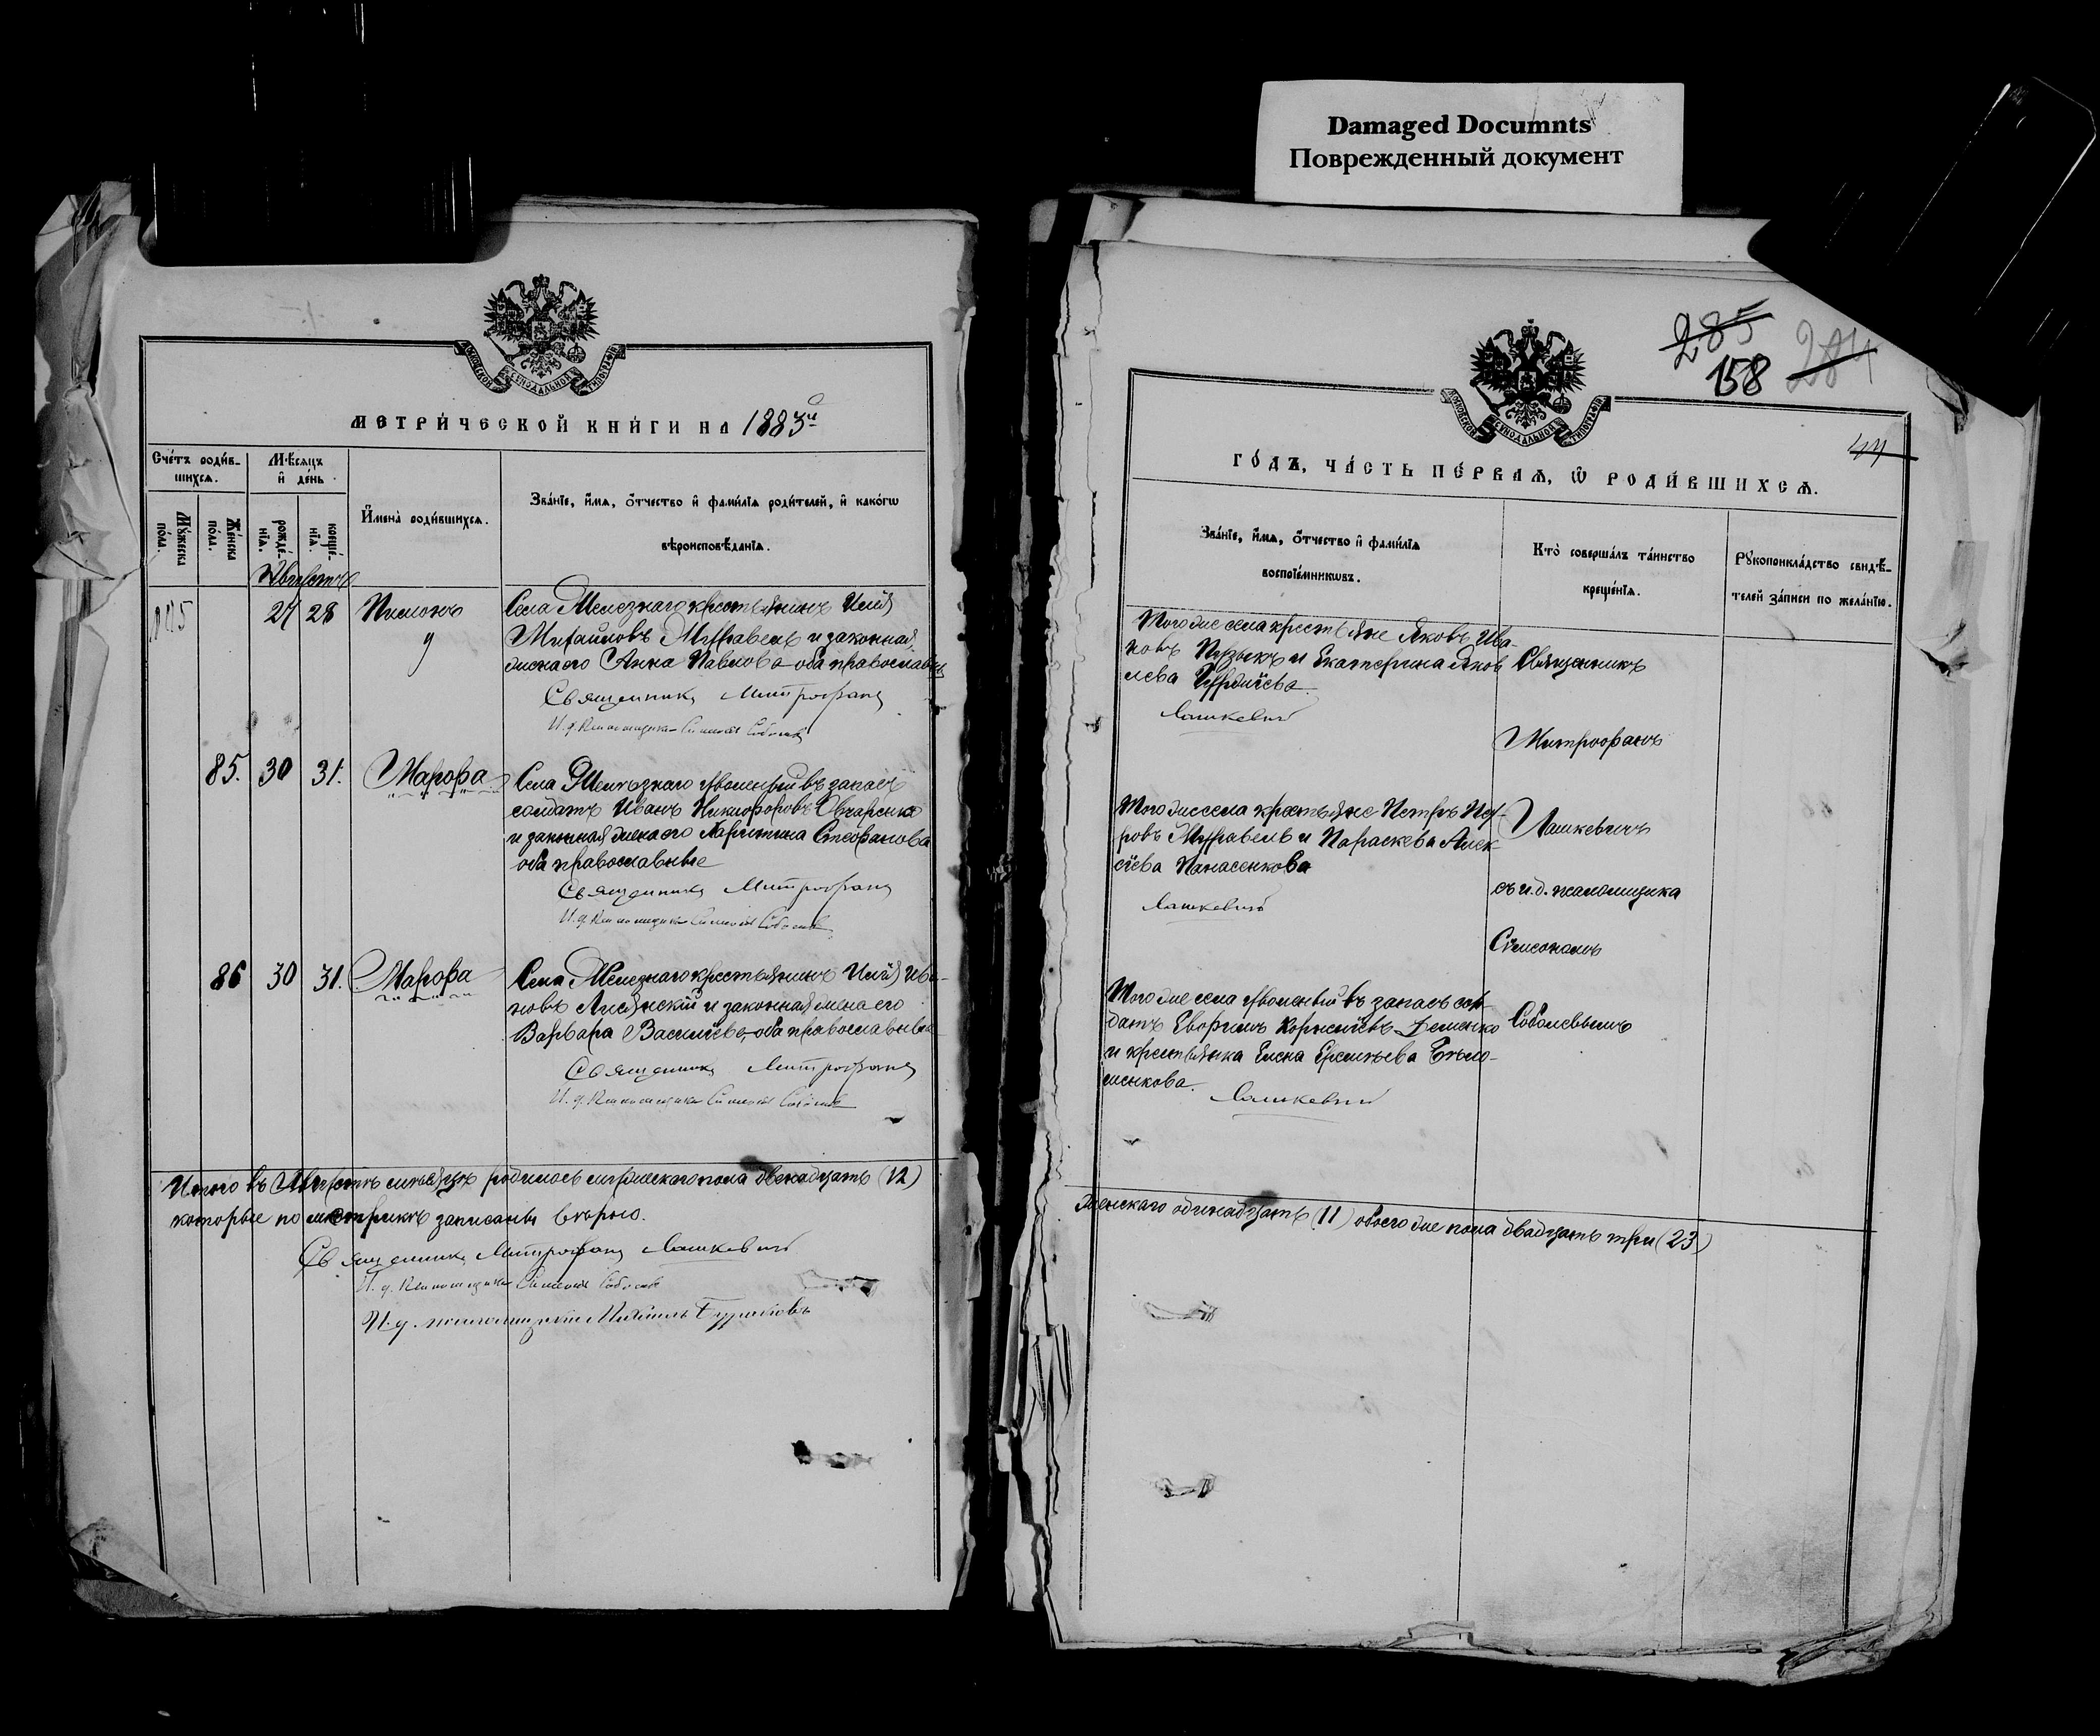 Damaged Documnts
Поврежденный документ
МОСКОВСКОЙ СѴНОДАЛЬНОЙ ТИПОГРАФІИ
МЕТРИ́ЧЕСКОЙ КНИ́ГИ НА 1883й
Сче́тъ роди́в-
шихся.
Мѣ́сяцъ
и҆ де́нь
Мꙋ́жеска
по́ла.
Же́нска
по́ла.
рожде́-
нїѧ.
креще́-
нїѧ.
И҆мена̀ роди́вшихсѧ.
Зва́нїе, и҆́мѧ, ѻ҆́тчество и҆ фами́лїѧ роди́телей, и҆ како́гѡ
вѣроисповѣ́данїѧ.
Августъ
27 28 Пименъ
Села Железнаго крестьянинъ Илія
Михаиловъ Журавель и законная
жена его Анна Павлова оба православны
Священникъ Митрофанъ
И. д. псаломщика Симеонъ Соболевъ
85. 30 31. Марѳа
Села Железнаго уволенный въ запасъ
солдатъ Иванъ Никифоровъ Овчаренко
и законная жена его Харитина Стефанова
оба православные
Священникъ Митрофанъ
И. д. псаломщика Симеонъ Соболевъ
86 30 31. Марѳа
Села Железнаго крестьянинъ Илія Ива-
новъ Лисянскій и законная жена его
Варвара Василіева, оба православные
Священникъ Митрофанъ
И. д. псаломщика Симеонъ Соболевъ
Итого въ Августѣ мѣсяцѣ родилось мужескаго пола двенадцать (12)
которые по метрикѣ записаны вѣрно.
Священникъ Митрофанъ Лашкевичъ
И. д. псаломщика Симеонъ Соболевъ
И. д. псаломщика Михаилъ
285
158 284
44
МОСКОВСКОЙ СѴНОДАЛЬНОЙ ТИПОГРАФІИ
ГО́ДЪ, ЧА́СТЬ ПЕ́РВАѦ, Ѡ҆ РОДИ́ВШИХСѦ.
Зва́нїе, и҆́мѧ, ѻ҆́тчество и҆ фами́лїѧ
воспрїе́мникѡвъ.
Кто̀ соверша́лъ та́инство
креще́нїѧ.
Рꙋкоприкла́дство свидѣ́-
телей за́писи по жела́нїю.
Того же села крестьяне Яковъ Ива-
новъ Пузыкъ и Екатерина Яков
лева
Лашкевичъ
Священникъ
Митрофанъ
Того же села крестьяне Петръ Пет-
ровъ Журавель и Параскева Алек
сіева Панасенкова
Лашкевичъ
Лашкевичъ
съ и. д. псаломщика
Симеономъ
Того же села уволенный въ запасъ сол-
датъ Евфимъ Корніліевъ Деменко
и крестьянка Елена
Лашкевичъ
Соболевымъ
Женскаго одинадцать (11) обоего же пола двадцать три (23)